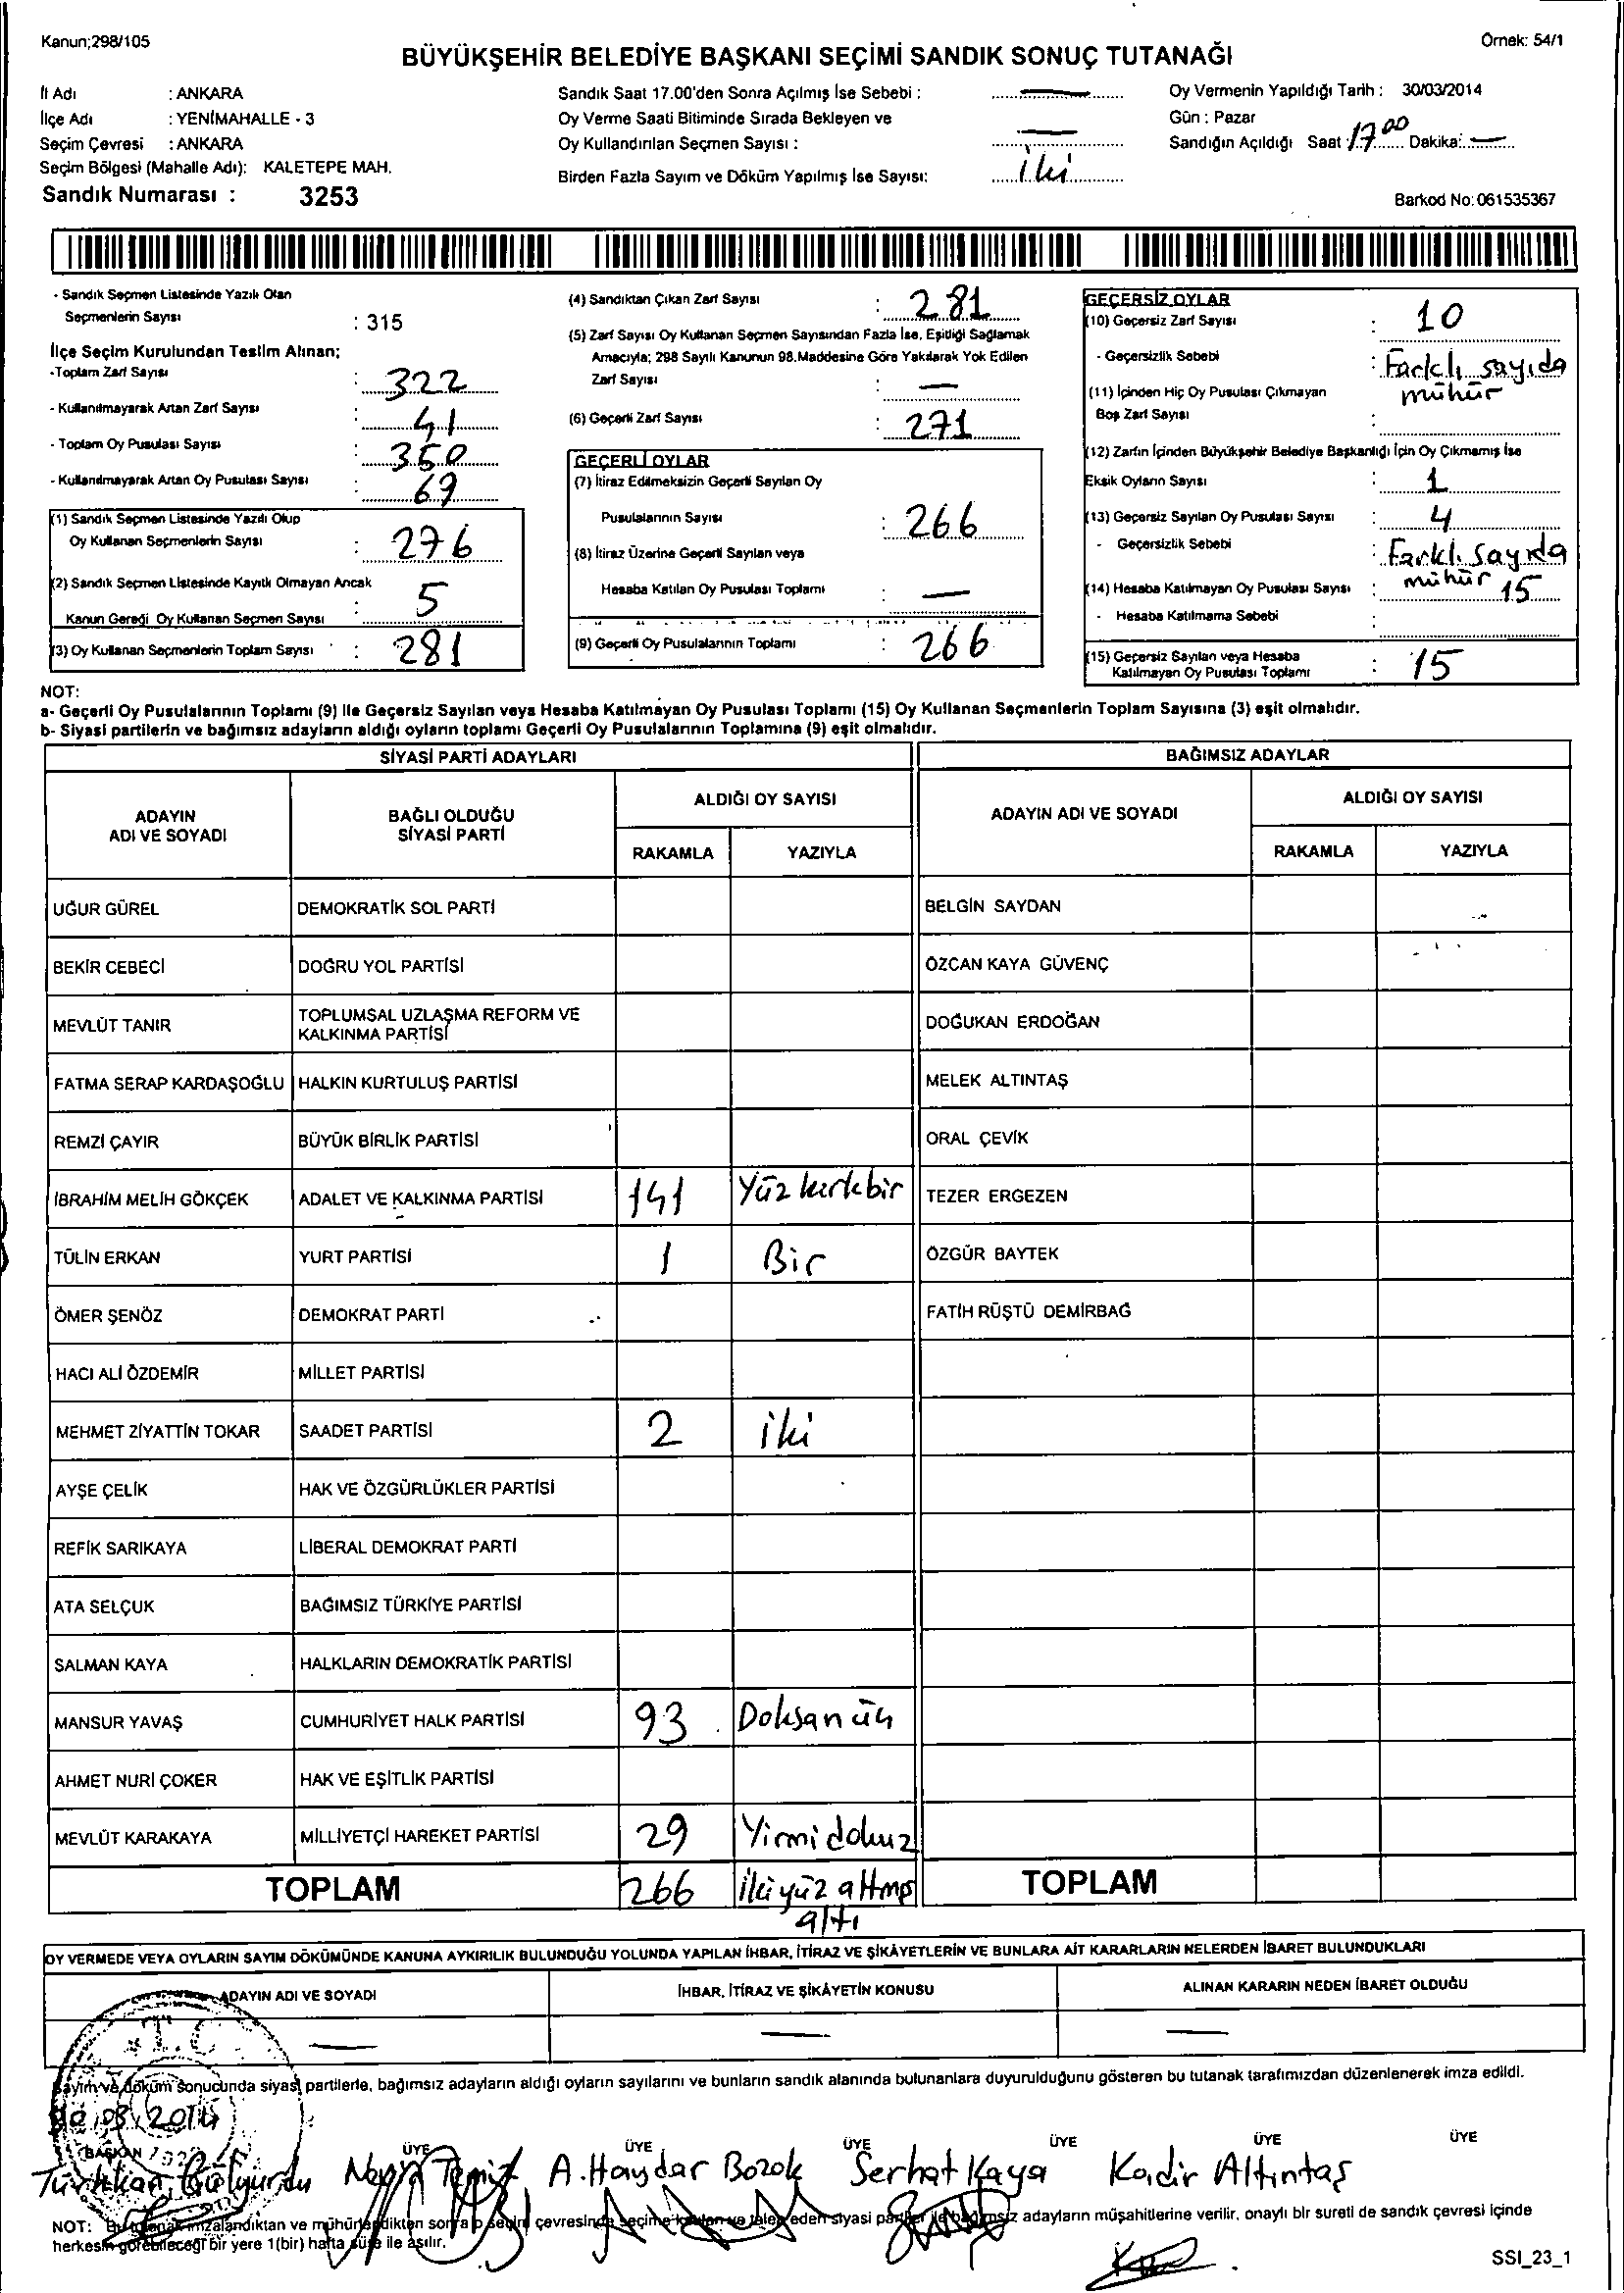 Kanun;298/105
Örnek: 54/1
BÜYÜKŞEHİR BELEDİYE BAŞKANI SEÇİMİ SANDIK SONUÇ TUTANAĞI
İl Adı : ANKARA
İlçe Adı : YENİMAHALLE - 3
Seçim Çevresi : ANKARA
Seçim Bölgesi (Mahalle Adı): KALETEPE MAH.
Sandık Numarası : 3253
Sandık Saat 17.00'den Sonra Açılmış İse Sebebi : —
Oy Verme Saati Bitiminde Sırada Bekleyen ve
Oy Kullandırılan Seçmen Sayısı : —
Birden Fazla Sayım ve Döküm Yapılmış İse Sayısı: iki
Oy Vermenin Yapıldığı Tarih : 30/03/2014
Gün : Pazar
Sandığın Açıldığı Saat : 17 00 Dakika: —
Barkod No: 061535367
- Sandık Seçmen Listesinde Yazılı Olan
Seçmenlerin Sayısı : 315
İlçe Seçim Kurulundan Teslim Alınan;
-Toplam Zarf Sayısı : 322
- Kullanılmayarak Artan Zarf Sayısı : 41
- Toplam Oy Pusulası Sayısı : 350
- Kullanılmayarak Artan Oy Pusulası Sayısı : 69
(1) Sandık Seçmen Listesinde Yazılı Olup
Oy Kullanan Seçmenlerin Sayısı : 276
(2) Sandık Seçmen Listesinde Kayıtlı Olmayan Ancak
Kanun Gereği Oy Kullanan Seçmen Sayısı : 5
(3) Oy Kullanan Seçmenlerin Toplam Sayısı : 281
(4) Sandıktan Çıkan Zarf Sayısı : 281
(5) Zarf Sayısı Oy Kullanan Seçmen Sayısından Fazla İse, Eşitliği Sağlamak
Amacıyla; 298 Sayılı Kanunun 98.Maddesine Göre Yakılarak Yok Edilen
Zarf Sayısı : —
(6) Geçerli Zarf Sayısı : 271
GEÇERLİ OYLAR
(7) İtiraz Edilmeksizin Geçerli Sayılan Oy
Pusulalarının Sayısı : 266
(8) İtiraz Üzerine Geçerli Sayılan veya
Hesaba Katılan Oy Pusulası Toplamı : —
(9) Geçerli Oy Pusulalarının Toplamı : 266
GEÇERSİZ OYLAR
(10) Geçersiz Zarf Sayısı : 10
- Geçersizlik Sebebi : Farklı sayıda
mühür
(11) İçinden Hiç Oy Pusulası Çıkmayan
Boş Zarf Sayısı :
(12) Zarfın İçinden Büyükşehir Belediye Başkanlığı İçin Oy Çıkmamış İse
Eksik Oyların Sayısı : 1
(13) Geçersiz Sayılan Oy Pusulası Sayısı : 4
- Geçersizlik Sebebi : Farklı Sayıda
mühür
(14) Hesaba Katılmayan Oy Pusulası Sayısı : 15
- Hesaba Katılmama Sebebi :
(15) Geçersiz Sayılan veya Hesaba
Katılmayan Oy Pusulası Toplamı : 15
NOT:
a- Geçerli Oy Pusulalarının Toplamı (9) İle Geçersiz Sayılan veya Hesaba Katılmayan Oy Pusulası Toplamı (15) Oy Kullanan Seçmenlerin Toplam Sayısına (3) eşit olmalıdır.
b- Siyasi partilerin ve bağımsız adayların aldığı oyların toplamı Geçerli Oy Pusulalarının Toplamına (9) eşit olmalıdır.
SİYASİ PARTİ ADAYLARI BAĞIMSIZ ADAYLAR
ADAYIN
ADI VE SOYADI
BAĞLI OLDUĞU
SİYASİ PARTİ
ALDIĞI OY SAYISI
RAKAMLA YAZIYLA
ADAYIN ADI VE SOYADI
ALDIĞI OY SAYISI
RAKAMLA YAZIYLA
UĞUR GÜREL DEMOKRATİK SOL PARTİ BELGİN SAYDAN
BEKİR CEBECİ DOĞRU YOL PARTİSİ ÖZCAN KAYA GÜVENÇ
MEVLÜT TANIR TOPLUMSAL UZLAŞMA REFORM VE
KALKINMA PARTİSİ DOĞUKAN ERDOĞAN
FATMA SERAP KARDAŞOĞLU HALKIN KURTULUŞ PARTİSİ MELEK ALTINTAŞ
REMZİ ÇAYIR BÜYÜK BİRLİK PARTİSİ ORAL ÇEVİK
İBRAHİM MELİH GÖKÇEK ADALET VE KALKINMA PARTİSİ 141 Yüz kırkbir TEZER ERGEZEN
TÜLİN ERKAN YURT PARTİSİ 1 Bir ÖZGÜR BAYTEK
ÖMER ŞENÖZ DEMOKRAT PARTİ FATİH RÜŞTÜ DEMİRBAĞ
HACI ALİ ÖZDEMİR MİLLET PARTİSİ
MEHMET ZİYATTİN TOKAR SAADET PARTİSİ 2 iki
AYŞE ÇELİK HAK VE ÖZGÜRLÜKLER PARTİSİ
REFİK SARIKAYA LİBERAL DEMOKRAT PARTİ
ATA SELÇUK BAĞIMSIZ TÜRKİYE PARTİSİ
SALMAN KAYA HALKLARIN DEMOKRATİK PARTİSİ
MANSUR YAVAŞ CUMHURİYET HALK PARTİSİ 93 Doksan üç
AHMET NURİ ÇOKER HAK VE EŞİTLİK PARTİSİ
MEVLÜT KARAKAYA MİLLİYETÇİ HAREKET PARTİSİ 29 Yirmi dokuz
TOPLAM 266 İki yüz altmış TOPLAM
altı
OY VERMEDE VEYA OYLARIN SAYIM DÖKÜMÜNDE KANUNA AYKIRILIK BULUNDUĞU YOLUNDA YAPILAN İHBAR, İTİRAZ VE ŞİKÂYETLERİN VE BUNLARA AİT KARARLARIN NELERDEN İBARET BULUNDUKLARI
ADAYIN ADI VE SOYADI İHBAR, İTİRAZ VE ŞİKÂYETİN KONUSU ALINAN KARARIN NEDEN İBARET OLDUĞU
— — —
T.C.
Sayım ve döküm sonucunda siyasi partilerle, bağımsız adayların aldığı oyların sayılarını ve bunların sandık alanında bulunanlara duyurulduğunu gösteren bu tutanak tarafımızdan düzenlenerek imza edildi.
BAŞKAN ÜYE ÜYE ÜYE ÜYE ÜYE ÜYE
A. Haydar Bozok Serhat Kaya Kadir Altıntaş
NOT: Bu tutanak imzalandıktan ve mühürlendikten sonra o seçim çevresinde seçime katılan ve talep eden siyasi partiler ile bağımsız adayların müşahitlerine verilir, onaylı bir sureti de sandık çevresi içinde
herkesin görebileceği bir yere 1(bir) hafta süre ile asılır.
SSI_23_1